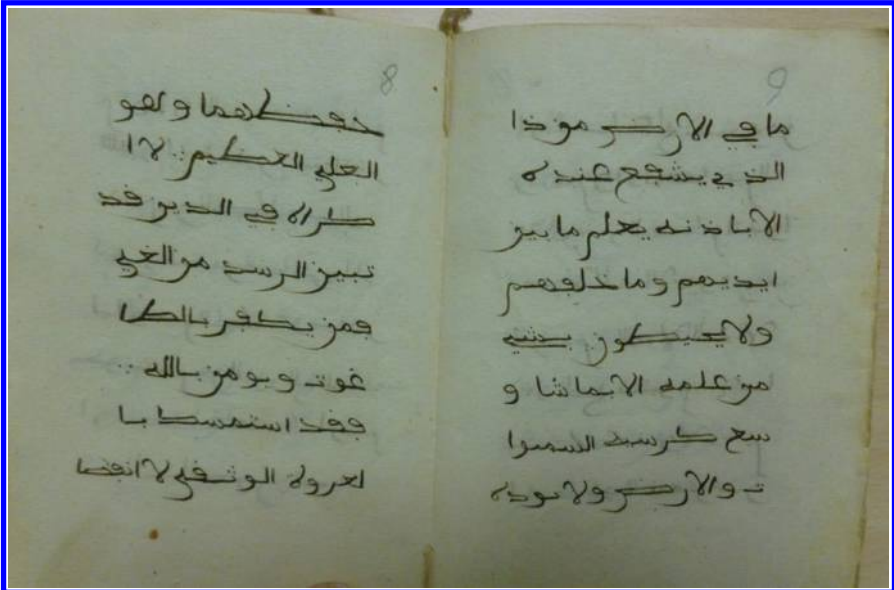 9
ما في الارض من ذا
الذي يشفع عنده
الا باذنه يعلم ما بين
ايديهم وما خلفهم
ولا يحيطون بشي
من علمه الا بما شا و
سع كرسيه السموا
ت والارض ولا يوده
8
حفظهما وهو
العلي العظيم لا ا
كراه في الدين قد
تبين الرسد من الغي
فمن يكفر بالطا
غوت ويومن بالله
فقد استمسك با
لعروة الوثقى لا انفصا